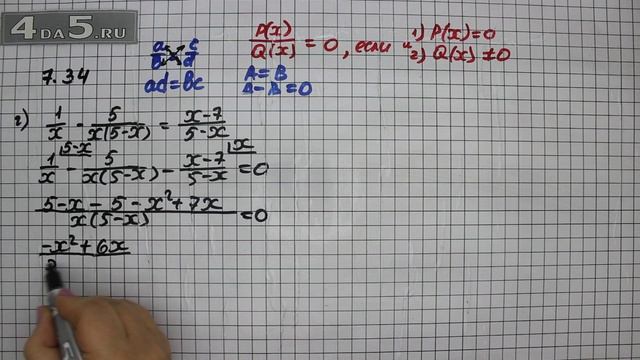 4DA5.RU
a/b = c/d
ad=bc
P(x)/Q(x) = 0, если 1) P(x)=0 и 2) Q(x)≠0
A=B
A-B=0
7.34
г) 1/x - 5/x(5-x) = x-7/5-x
1/x |5-x - 5/x(5-x) - x-7/5-x |x =0
5-x-5-x²+7x/x(5-x) =0
-x²+6x